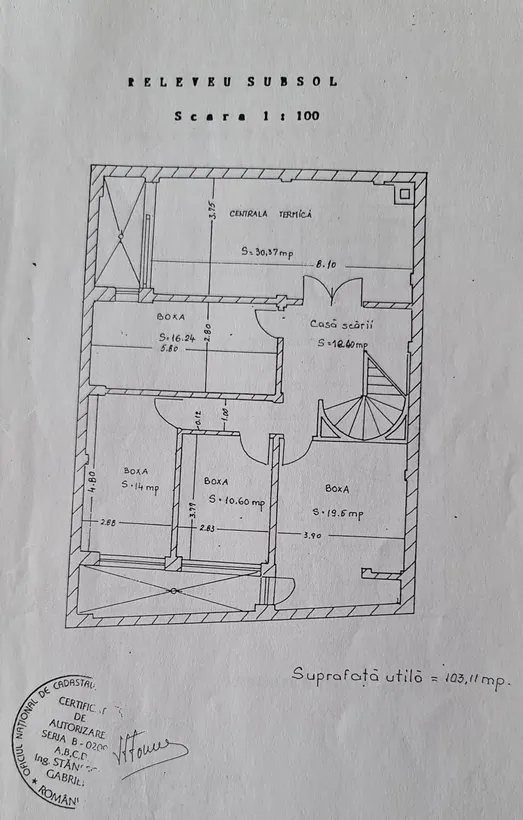 RELEVEU SUBSOL
Scara 1 : 100
3.75
CENTRALA TERMICĂ
S=30,37mp
8.10
BOXA
S=16.24
5.80
2.80
Casă scării
S=12.40mp
0.12
1.00
4.80
BOXA
S=14 mp
2.88
BOXA
S=10.60 mp
3.77
2.83
BOXA
S=19.5 mp
3.90
Suprafață utilă = 103,11 mp.
OFICIUL NAȚIONAL DE CADASTRU
CERTIFIC
DE
AUTORIZARE
SERIA B - 0200
A.B.C.D.
Ing. STÂN
GABRIE
★ ROMÂNI